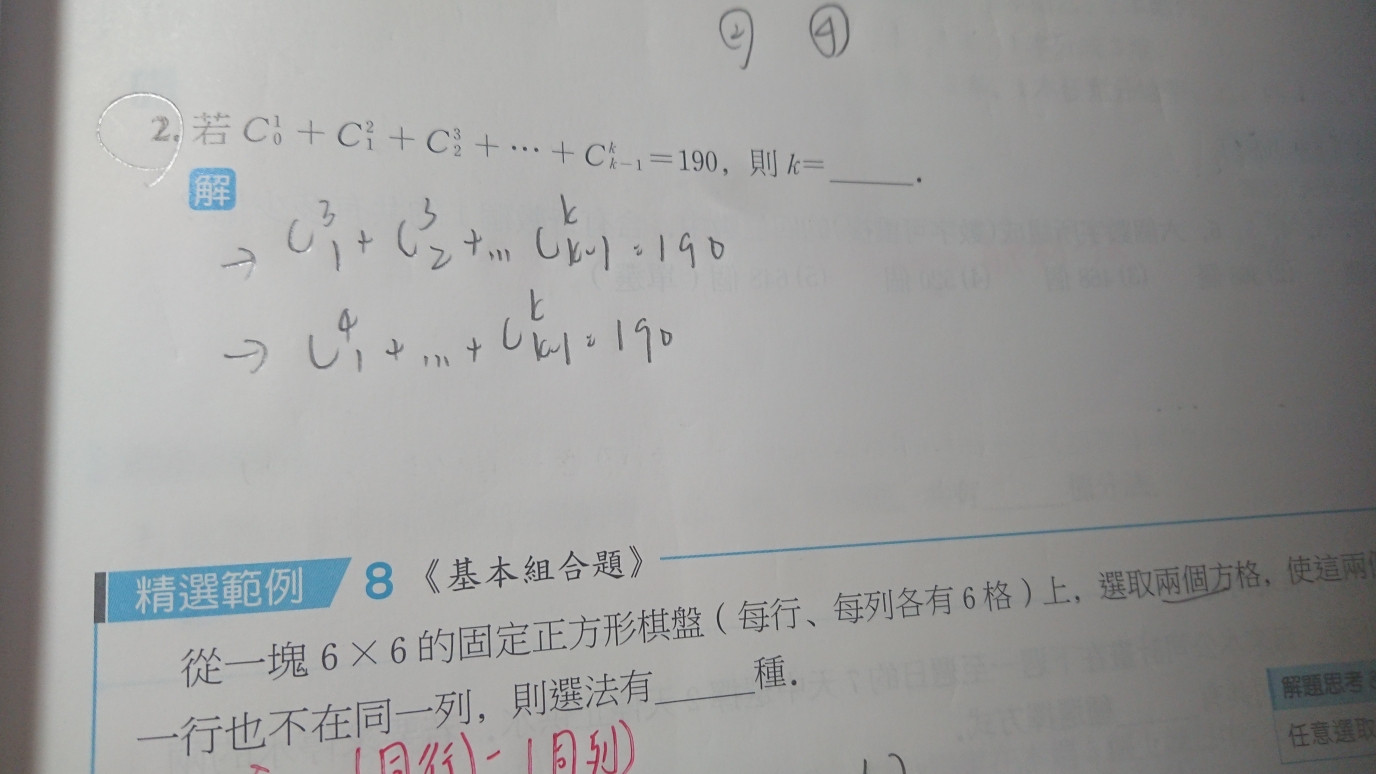 ② ④
2. 若 C₀¹ + C₁² + C₂³ + ⋯ + Cₖ₋₁ᵏ = 190, 則 k= ______.
解
→ C₁³ + C₂³ + ... Cₖ₋₁ᵏ = 190
→ C₁⁴ + ... + Cₖ₋₁ᵏ = 190
精選範例 8 《基本組合題》
從一塊 6 × 6 的固定正方形棋盤 ( 每行、每列各有 6 格 ) 上, 選取兩個方格, 使這兩
一行也不在同一列, 則選法有_____種.
解題思考
任意選取
(同行) - (同列)